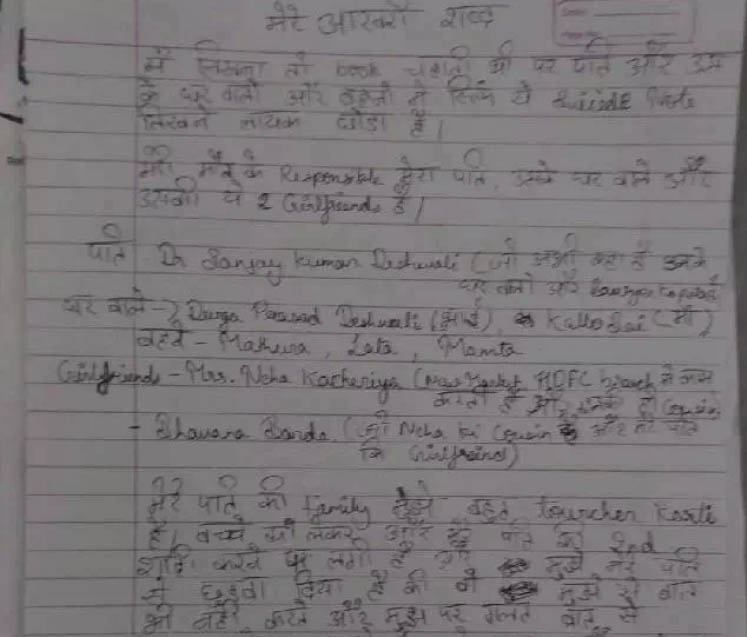 मेरे आखरी शब्द
मैं लिखना तो book चहाती थी पर पति और उस
के घर वालो और बहनो ने सिर्फ ये Suicide Note
लिखने लायक छोडा है।
मेरी मौत के Responsible मेरा पति, उसके घर वाले और
उसकी ये 2 Girlfriends है।
पति Dr Sanjay Kumar Deshwali (जो अभी कहा है उसके
घर वालो और Lawyer को पता है
घर वाले → Durga Parasad Deshwali (भाई), Kallo Bai (माँ)
बहने - Mathura, Lata, Mamta
Girlfriends - Mrs. Neha Kacheriya (HDFC branch में काम
करती है और Cousin
- Bhavana (जो Neha की Cousin है और मेरे पति
कि Girlfriend)
मेरे पति की family मुझे बहुत tourcher karti
है। बच्चे को लेकर और पति का 2nd
शादी करने पर लगी है और मुझे मेरे पति
से छुडवा दिया है की वो मुझे से बात
भी नही करते और मुझ पर गलत बात से